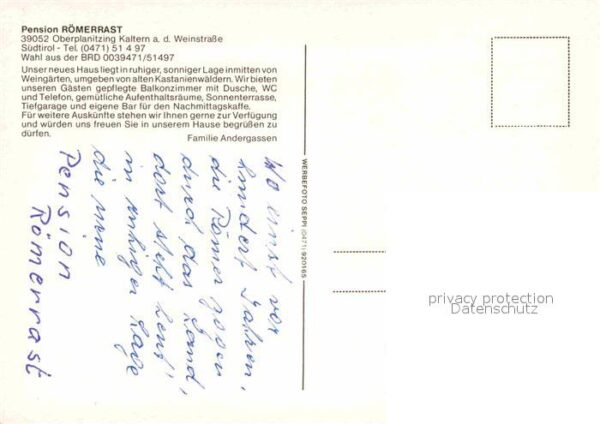 Pension RÖMERRAST
39052 Oberplanitzing Kaltern a. d. Weinstraße
Südtirol - Tel. (0471) 51 4 97
Wahl aus der BRD 0039471/51497
Unser neues Haus liegt in ruhiger, sonniger Lage inmitten von
Weingärten, umgeben von alten Kastanienwäldern. Wir bieten
unseren Gästen gepflegte Balkonzimmer mit Dusche, WC
und Telefon, gemütliche Aufenthaltsräume, Sonnenterrasse,
Tiefgarage und eigene Bar für den Nachmittagskaffe.
Für weitere Auskünfte stehen wir Ihnen gerne zur Verfügung
und würden uns freuen Sie in unserem Hause begrüßen zu
dürfen.
Familie Andergassen
Wo einst vor
hundert Jahren,
die Römer zogen
durch das Land,
dort steht heut',
in ruhiger Lage
die neue
Pension
Römerrast
WERBEFOTO SEPPI (0471) 920165
privacy protection
Datenschutz